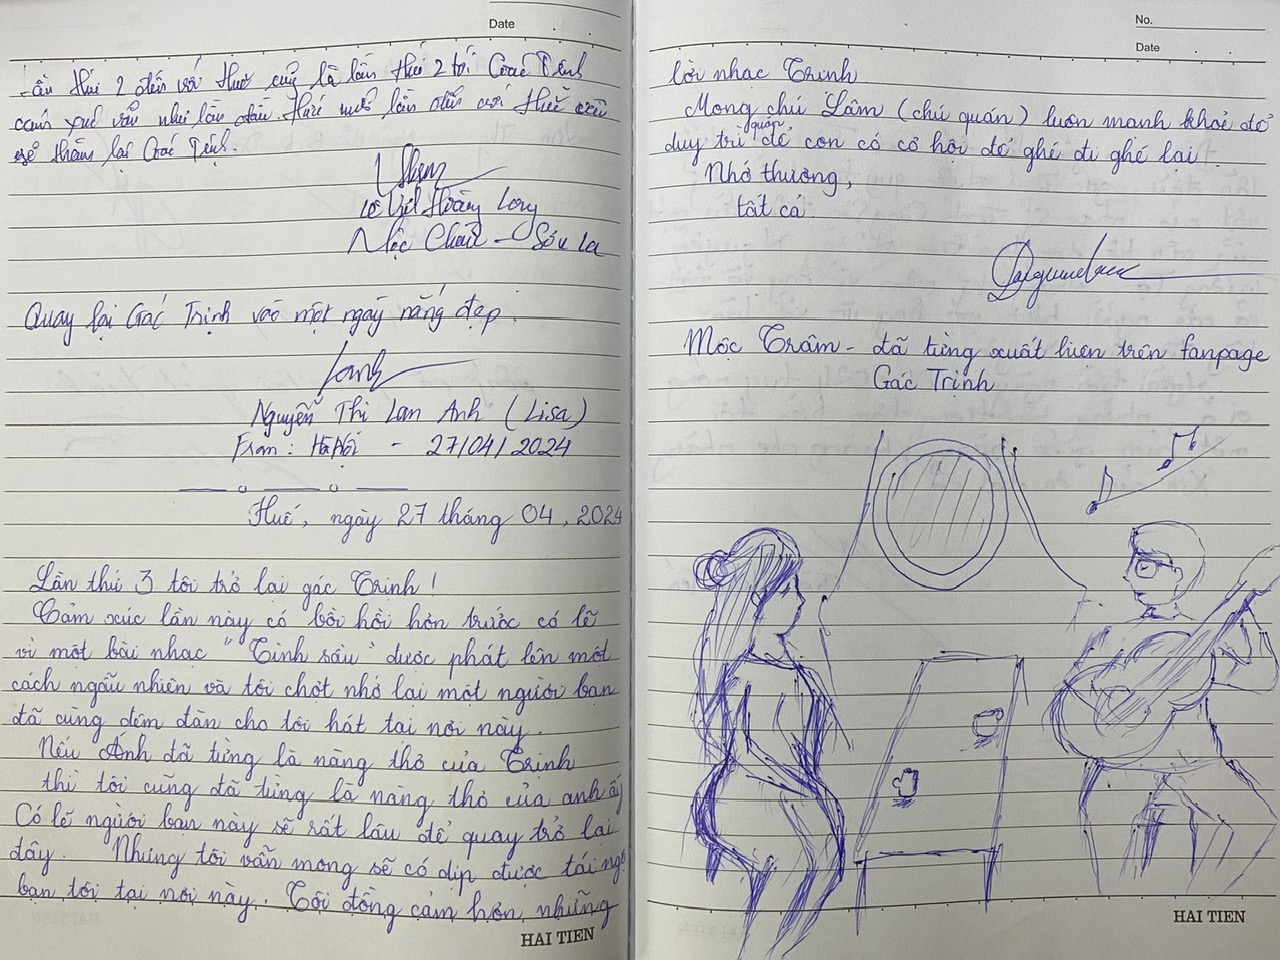 Date
Lần thứ 2 đến với Huế cũng là lần thứ 2 tới Gác Trịnh
cảm xúc vẫn như lần đầu. Hứa mỗi lần đến với Huế
sẽ thăm lại Gác Trịnh.
Lê Việt Hoàng Long
Mộc Châu - Sơn La
Quay lại Gác Trịnh vào một ngày nắng đẹp.
Nguyễn Thị Lan Anh (Lisa)
From: Hà Nội - 27/04/2024
Huế, ngày 27 tháng 04, 2024
Lần thứ 3 tôi trở lại gác Trịnh!
Cảm xúc lần này có bồi hồi hơn trước có lẽ
vì một bài nhạc "Tình sầu" được phát lên một
cách ngẫu nhiên và tôi chợt nhớ lại một người bạn
đã cùng đệm đàn cho tôi hát tại nơi này.
Nếu Ánh đã từng là nàng thơ của Trịnh
thì tôi cũng đã từng là nàng thơ của anh ấy
Có lẽ người bạn này sẽ rất lâu để quay trở lại
đây. Nhưng tôi vẫn mong sẽ có dịp được tái ngộ
bạn tôi tại nơi này. Tôi đồng cảm hơn những
HAI TIEN
No.
Date
lời nhạc Trịnh
Mong chú Lâm (chú quán) luôn mạnh khoẻ để
duy trì quán để con có cơ hội để ghé đi ghé lại.
Nhớ thương,
tất cả
Mộc Trâm - đã từng xuất hiện trên fanpage
Gác Trịnh
HAI TIEN